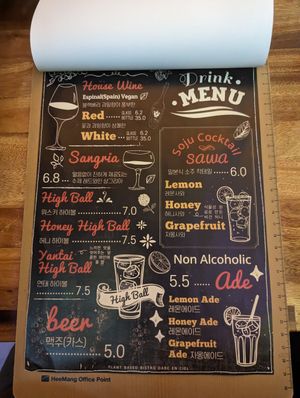 Drink
MENU
House Wine
Espinal(Spain) Vegan
Red
6.2
35.0
White
6.2
35.0
Sangria
6.8
High Ball
위스키 하이볼
7.0
Honey High Ball
허니 하이볼
7.5
Yantai
High Ball
연태 하이볼
7.5
High Ball
beer
맥주(카스)
5.0
Soju Cocktail
sawa
6.0
Lemon
레몬사와
Honey
허니사와
Grapefruit
자몽사와
Non Alcoholic
5.5
Ade
Lemon Ade
레몬에이드
Honey Ade
허니에이드
Grapefruit
Ade 자몽에이드
PLANT BASED BISTRO DARE EN CIEL
HeeMang Office Point